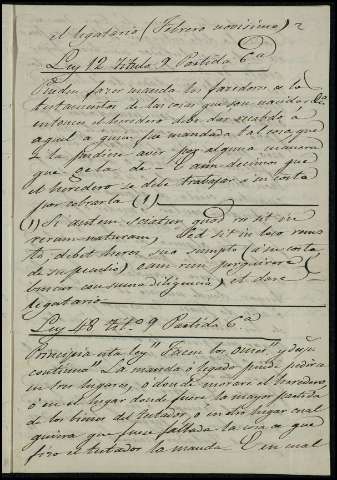 el legatario (Febrero novisimo) 2
Ley 12 titulo 9 Partida 6.a
Pueden fazer manda los fazedores de los
testamentos de las cosas que son nacidas Ca
entonces el heredero debe dar recabdo a
aquel a quien fue mandada tal cosa que
si la pudiere aver por alguna manera
que ge la de — E aun decimos que
el heredero se debe trabajar a su costa
por cobrarla (1)
(1) Si autem sciatur quod res sit in
rerum naturam, sed sit in loco remo
ta, debet heres suo sumptu (a su costa
de su peculio) eam rem perquirere (
buscar con suma diligencia) et dare
legatario
Ley 48 Tit.o 9 Partida 6.a
Principia esta ley "Facen los omes" y dize
continuo "La manda o legado puede pedirse
en tres lugares, ó donde morare el heredero,
ó en el lugar donde fuere la mayor partida
de los bienes del testador, o en otro lugar cual
quiera que fuere fallada la cosa que
fizo el testador la manda. E en cual